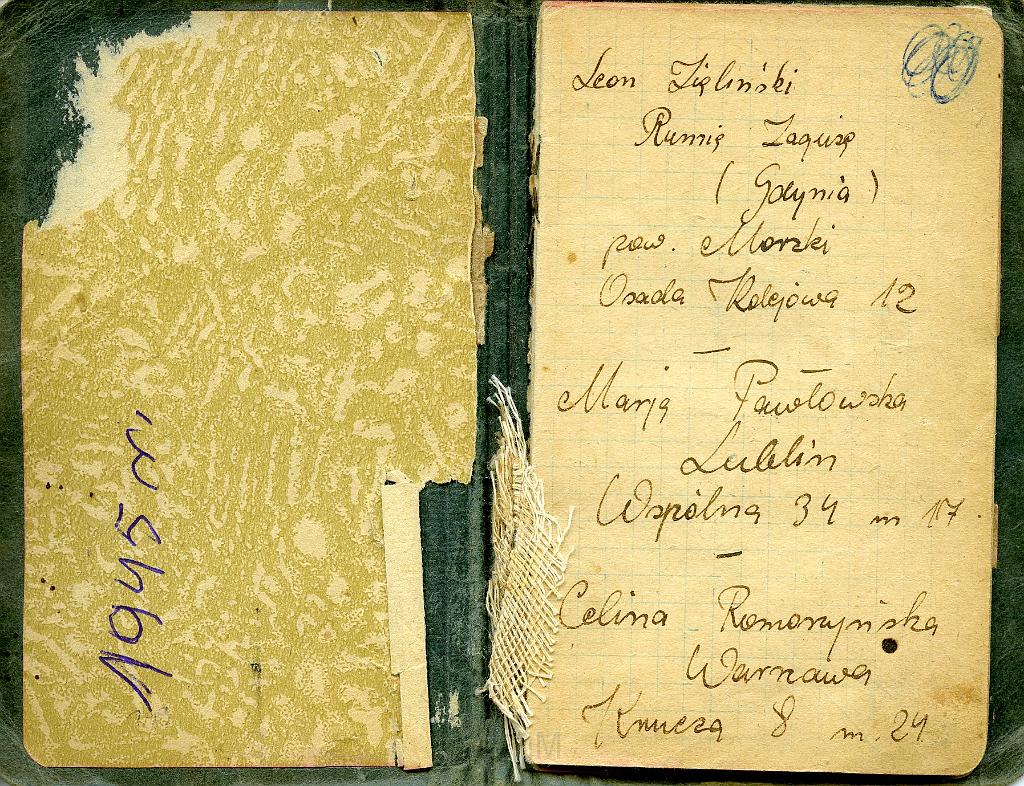 1945 r.
Leon Zieliński
Rumię Zagużę
(Gdynia)
pow. Morski
Osada Kolejowa 12
Marją Pawłowska
Lublin
Wspólna 34 m 17.
Celina Romorzyńska
Warszawa
Krucza 8 m. 24